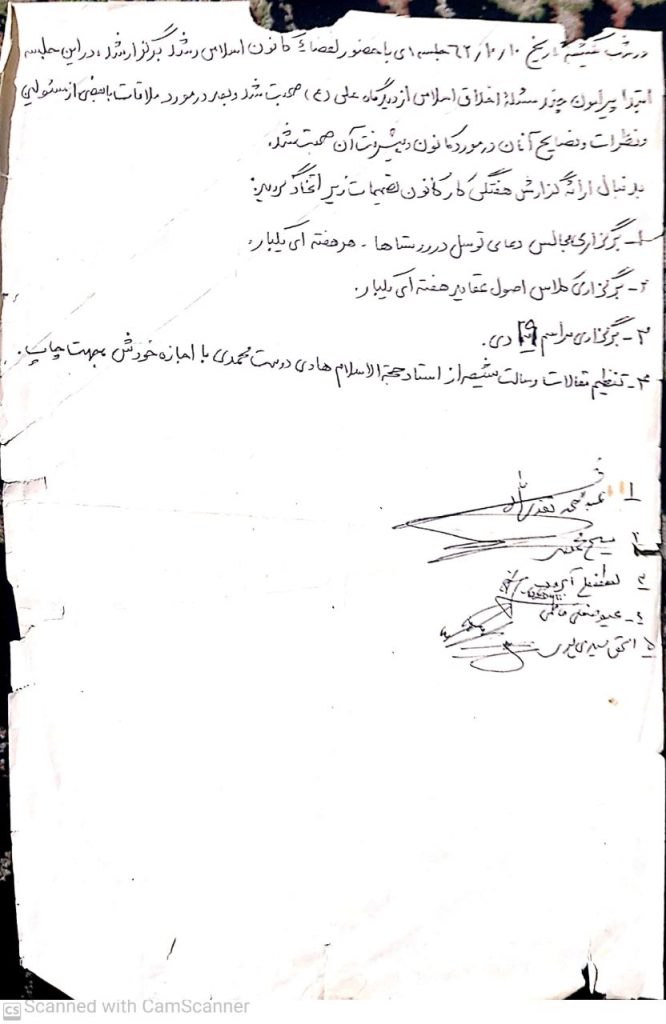 در شب یکشنبه تاریخ ۶۲/۱۰/۱۰ جلسه ای با حضور اعضاء کانون اسلامی رشد برگزار شد، در این جلسه
ابتدا پیرامون چند مسئله اخلاق اسلامی از دیدگاه علی (ع) صحبت شد و بعد در مورد ملاقات با بعضی از مسئولین
و نظرات و نصایح آنان در مورد کانون و پیشرفت آن صحبت شد.
بدنبال ارائه گزارش هفتگی کار کانون تصمیمات زیر اتخاذ گردید:
۱- برگزاری مجالس دعای توسل در روستاها - هر هفته ای یکبار.
۲- برگزاری کلاس اصول عقاید هفته ای یکبار.
۳- برگزاری مراسم دی.
۴- تنظیم مقالات رسالت شیعه از استاد حجة الاسلام هادی دوست محمدی با اجازه خودش بجهت چاپ.
۱
۲
۳ لطفعلی
۴-
۵
CS Scanned with CamScanner